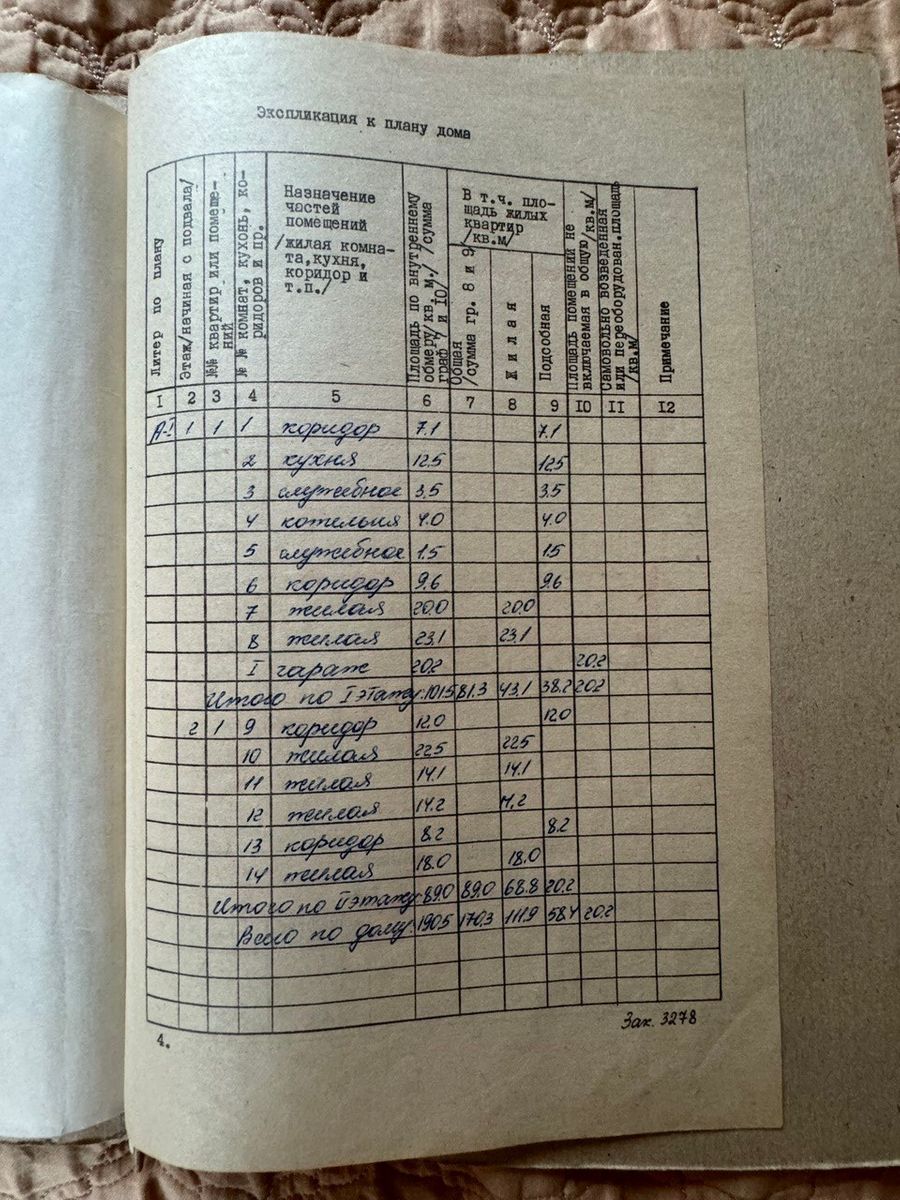 Экспликация к плану дома
Литер по плану
Этаж/начиная с подвала/
№№ квартир или помеще-
ний
№ № комнат, кухонь, ко-
ридоров и пр.
Назначение
частей
помещений
/жилая комна-
та,кухня,
коридор и
т.п./
Площадь по внутреннему
обмеру/кв. м./ /сумма
граф 7 и 10/
В т.ч. пло-
щадь жилых
квартир
/кв.м/
Общая
/сумма гр. 8 и 9
Жилая
Подсобная
Площадь помещений не
включаемая в общую/кв.м/
Самовольно возведенная
или переоборудован.площадь
/кв.м/
Примечание
I 2 3 4 5 6 7 8 9 I0 II I2
А-I 1 1 1 коридор 7.1 7.1
2 кухня 12.5 12.5
3 служебное 3.5 3.5
4 котельня 4.0 4.0
5 служебное 1.5 1.5
6 коридор 9.6 9.6
7 жилая 20.0 20.0
8 жилая 23.1 23.1
I гараж 20.2 20.2
Итого по I этажу: 101.5 81.3 43.1 38.2 20.2
2 1 9 коридор 12.0 12.0
10 жилая 22.5 22.5
11 жилая 14.1 14.1
12 жилая 14.2 14.2
13 коридор 8.2 8.2
14 жилая 18.0 18.0
Итого по II этажу: 89.0 89.0 68.8 20.2
Всего по дому: 190.5 170.3 111.9 58.4 20.2
Зак. 3278
4.